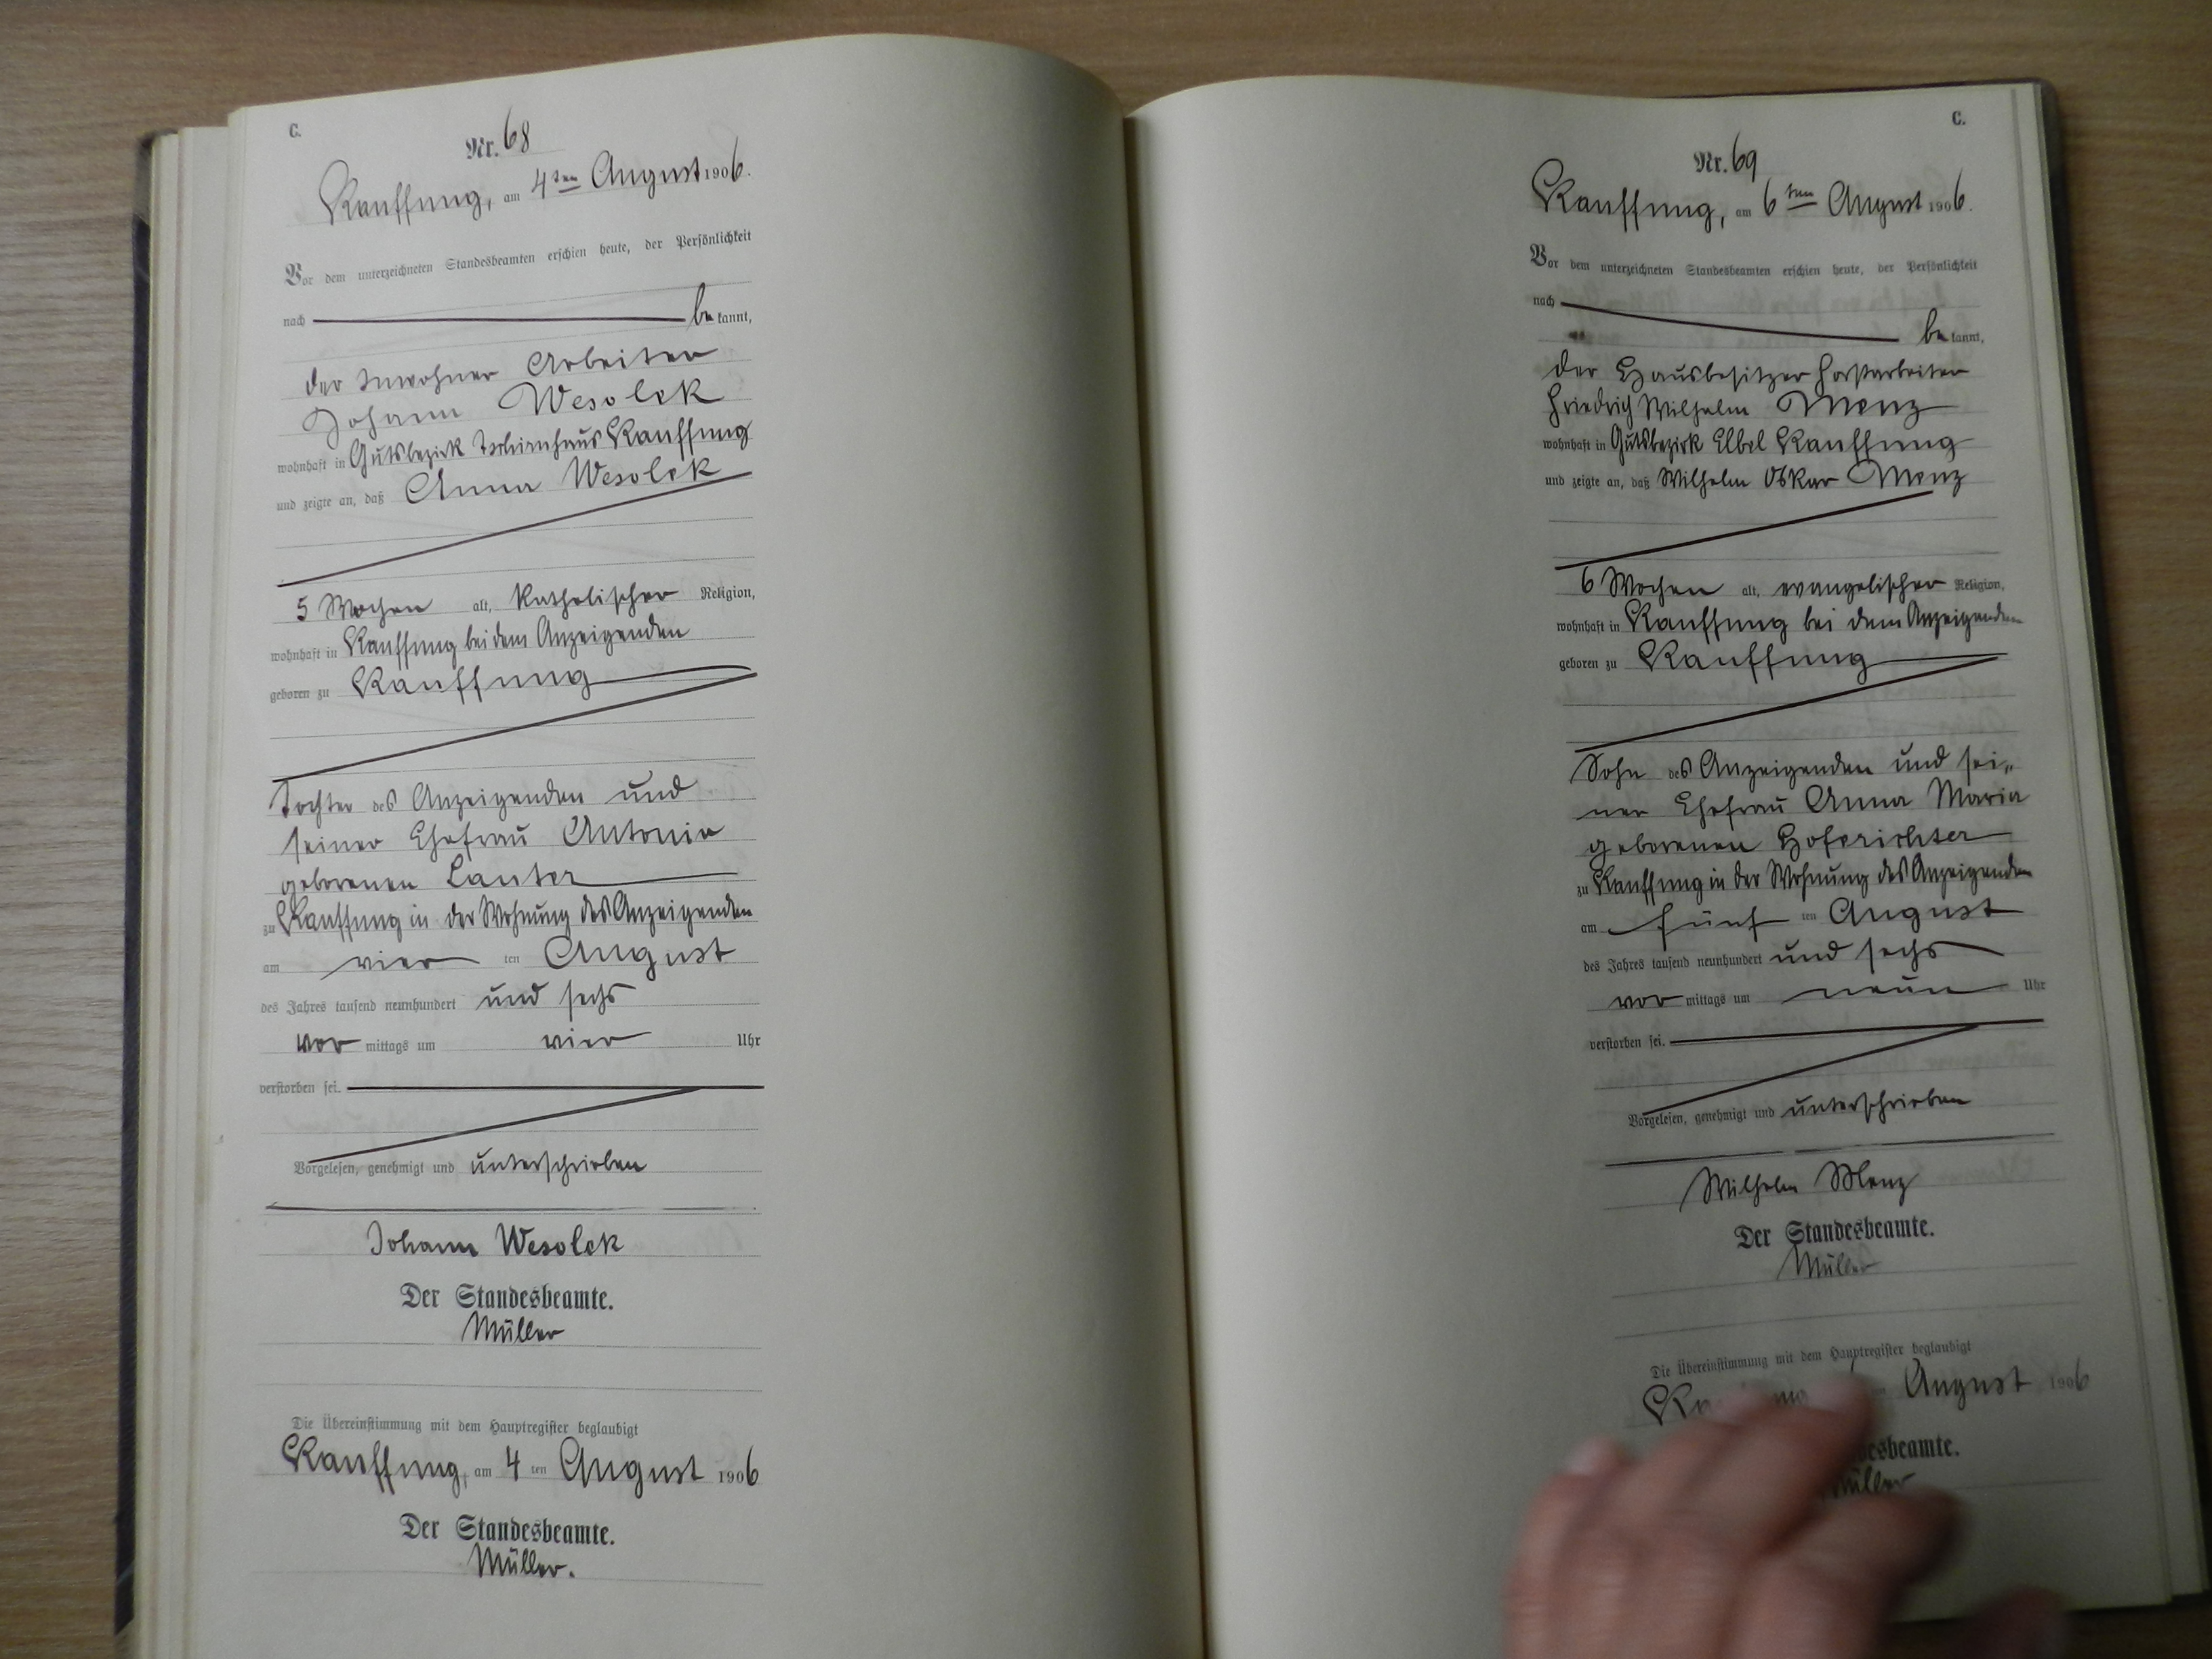 C.
Nr. 68
Kauffung, am 4ten August 1906.
Vor dem unterzeichneten Standesbeamten erschien heute, der Persönlichkeit
nach be kannt,
der Inwohner Arbeiter
Johann Wesolek
wohnhaft in Gutsbezirk Tschirnhaus Kauffung
und zeigte an, daß Anna Wesolek
5 Wochen alt, katholischer Religion,
wohnhaft in Kauffung bei dem Anzeigenden
geboren zu Kauffung
Tochter des Anzeigenden und
seiner Ehefrau Antonie
geborenen Lauter
zu Kauffung in der Wohnung des Anzeigenden
am vier ten August
des Jahres tausend neunhundert und sechs
vor mittags um vier Uhr
verstorben sei.
Vorgelesen, genehmigt und unterschrieben
Johann Wesolek
Der Standesbeamte.
Müller
Die Übereinstimmung mit dem Hauptregister beglaubigt
Kauffung, am 4 ten August 1906
Der Standesbeamte.
Müller.
C.
Nr. 69
Kauffung, am 6ten August 1906.
Vor dem unterzeichneten Standesbeamten erschien heute, der Persönlichkeit
nach
be kannt,
der Hausbesitzer Forstarbeiter
Friedrich Wilhelm Menz
wohnhaft in Gutsbezirk Elbel Kauffung
und zeigte an, daß Wilhelm Oskar Menz
6 Wochen alt, evangelischer Religion,
wohnhaft in Kauffung bei dem Anzeigenden
geboren zu Kauffung
Sohn des Anzeigenden und sei„
ner Ehefrau Anna Maria
geborenen Hoferichter
zu Kauffung in der Wohnung des Anzeigenden
am fünf ten August
des Jahres tausend neunhundert und sechs
vor mittags um neun Uhr
verstorben sei.
Vorgelesen, genehmigt und unterschrieben
Wilhelm Menz
Der Standesbeamte.
Müller
Die Übereinstimmung mit dem Hauptregister beglaubigt
August 1906
Müller